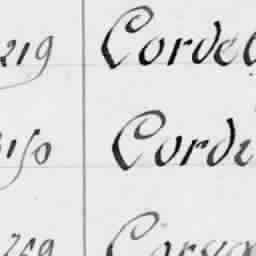 219 Cordel
150 Cordi
259